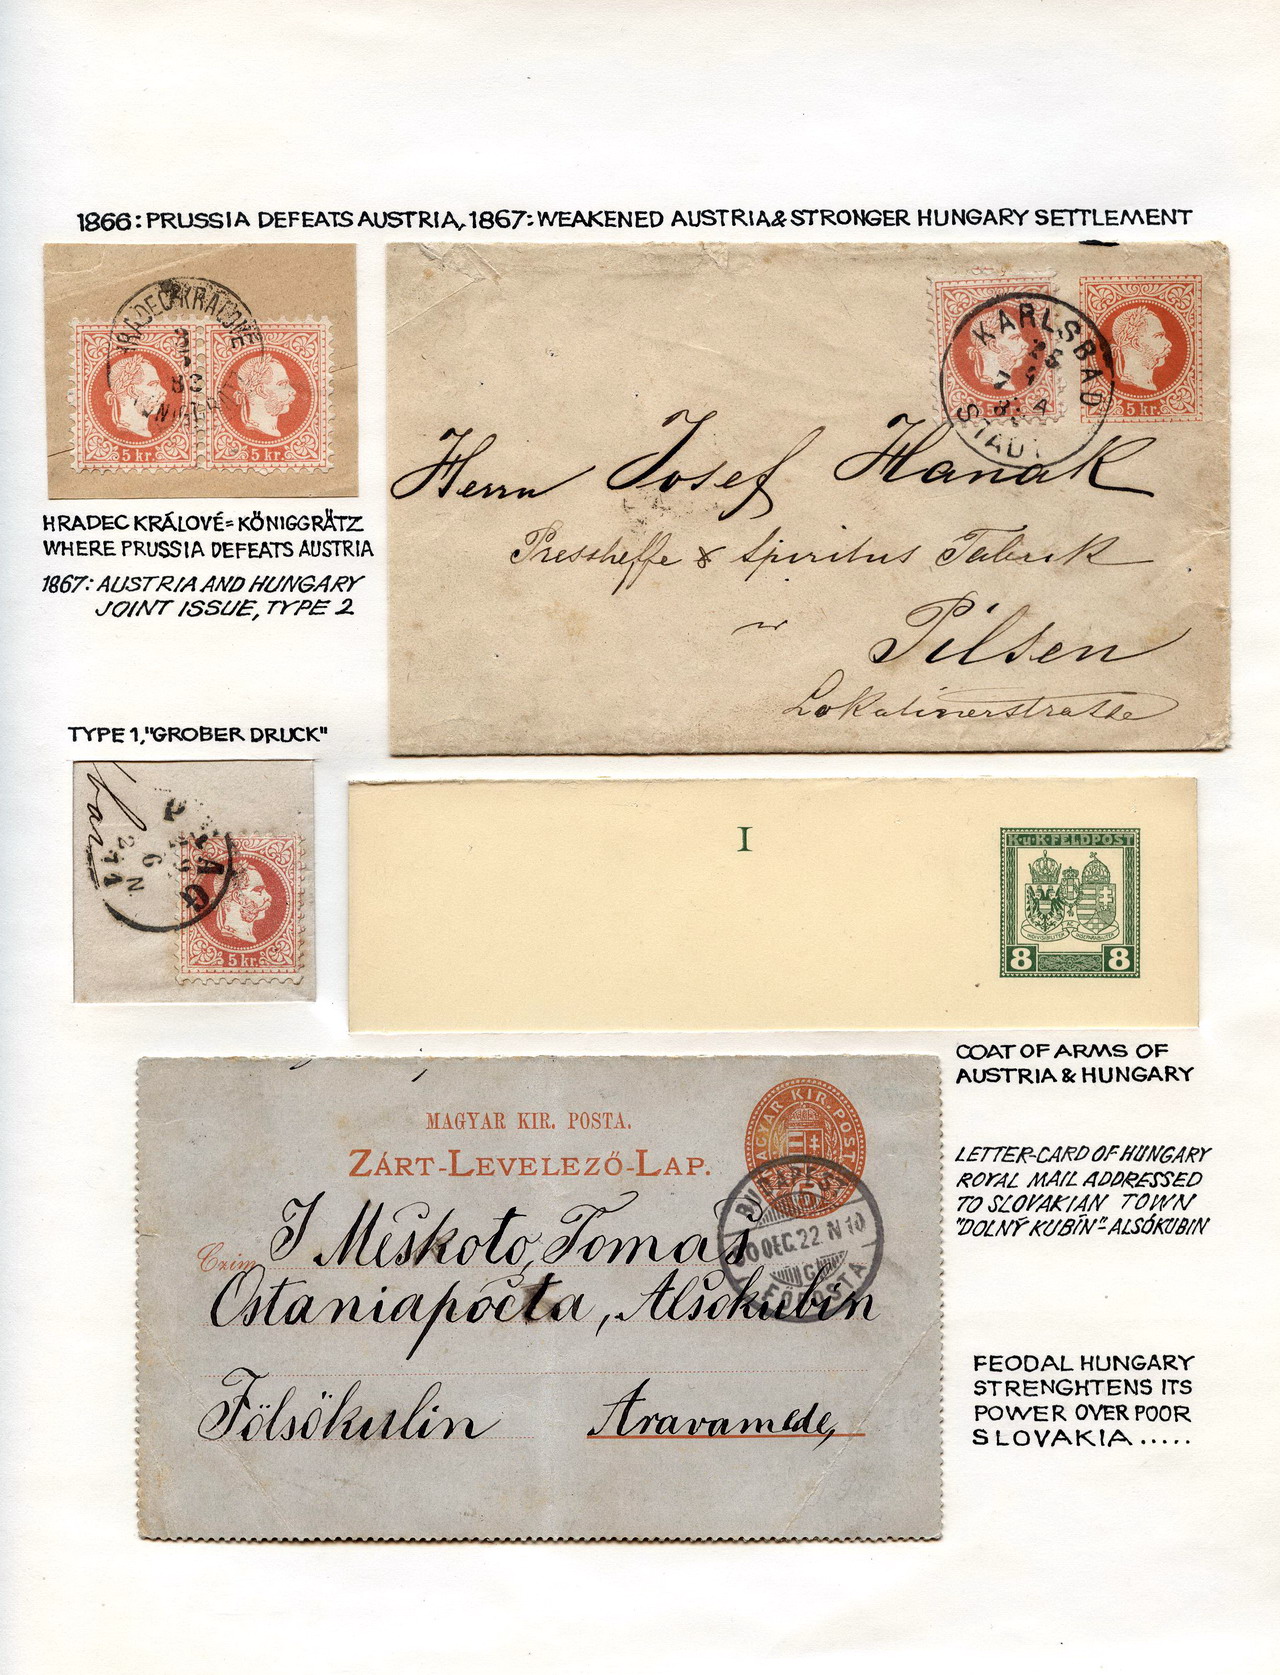 1866: PRUSSIA DEFEATS AUSTRIA, 1867: WEAKENED AUSTRIA & STRONGER HUNGARY SETTLEMENT
HRADEC KRÁLOVÉ
5 kr.
5 kr.
HRADEC KRÁLOVÉ = KÖNIGGRÄTZ
WHERE PRUSSIA DEFEATS AUSTRIA
1867: AUSTRIA AND HUNGARY
JOINT ISSUE, TYPE 2
KARLSBAD
STADT
5 kr.
5 kr.
Herrn Josef Hanak
Presshefe & Spiritus Fabrik
in
Pilsen
TYPE 1, "GROBER DRUCK"
PRAG
5 kr.
I
K.u.K. FELDPOST
8 8
COAT OF ARMS OF
AUSTRIA & HUNGARY
MAGYAR KIR. POSTA.
ZÁRT-LEVELEZŐ-LAP.
MAGYAR KIR. POSTA
5
BUDAPEST
DEC. 22 N 10
FŐPOSTA
Czim
J Meskoto, Tomaš
Ostaniapocta, Alsokubin
Fölsökulin Aravamede,
LETTER-CARD OF HUNGARY
ROYAL MAIL ADDRESSED
TO SLOVAKIAN TOWN
"DOLNÝ KUBÍN" - ALSÓKUBIN
FEODAL HUNGARY
STRENGHTENS ITS
POWER OVER POOR
SLOVAKIA .....